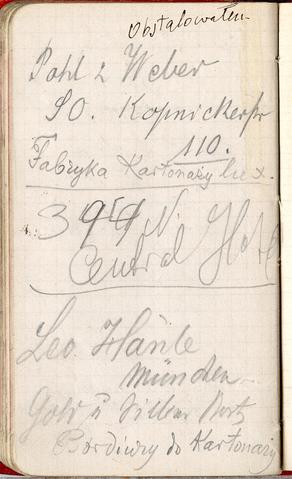 Obstalowałem
Pohl & Weber
SO. Kopnickerstr
110.
Fabryka Kartonaży lux.
39 N.
Central Hotel
Leo Hänle
München
Gold u Silber
Bordiury do Kartonaży